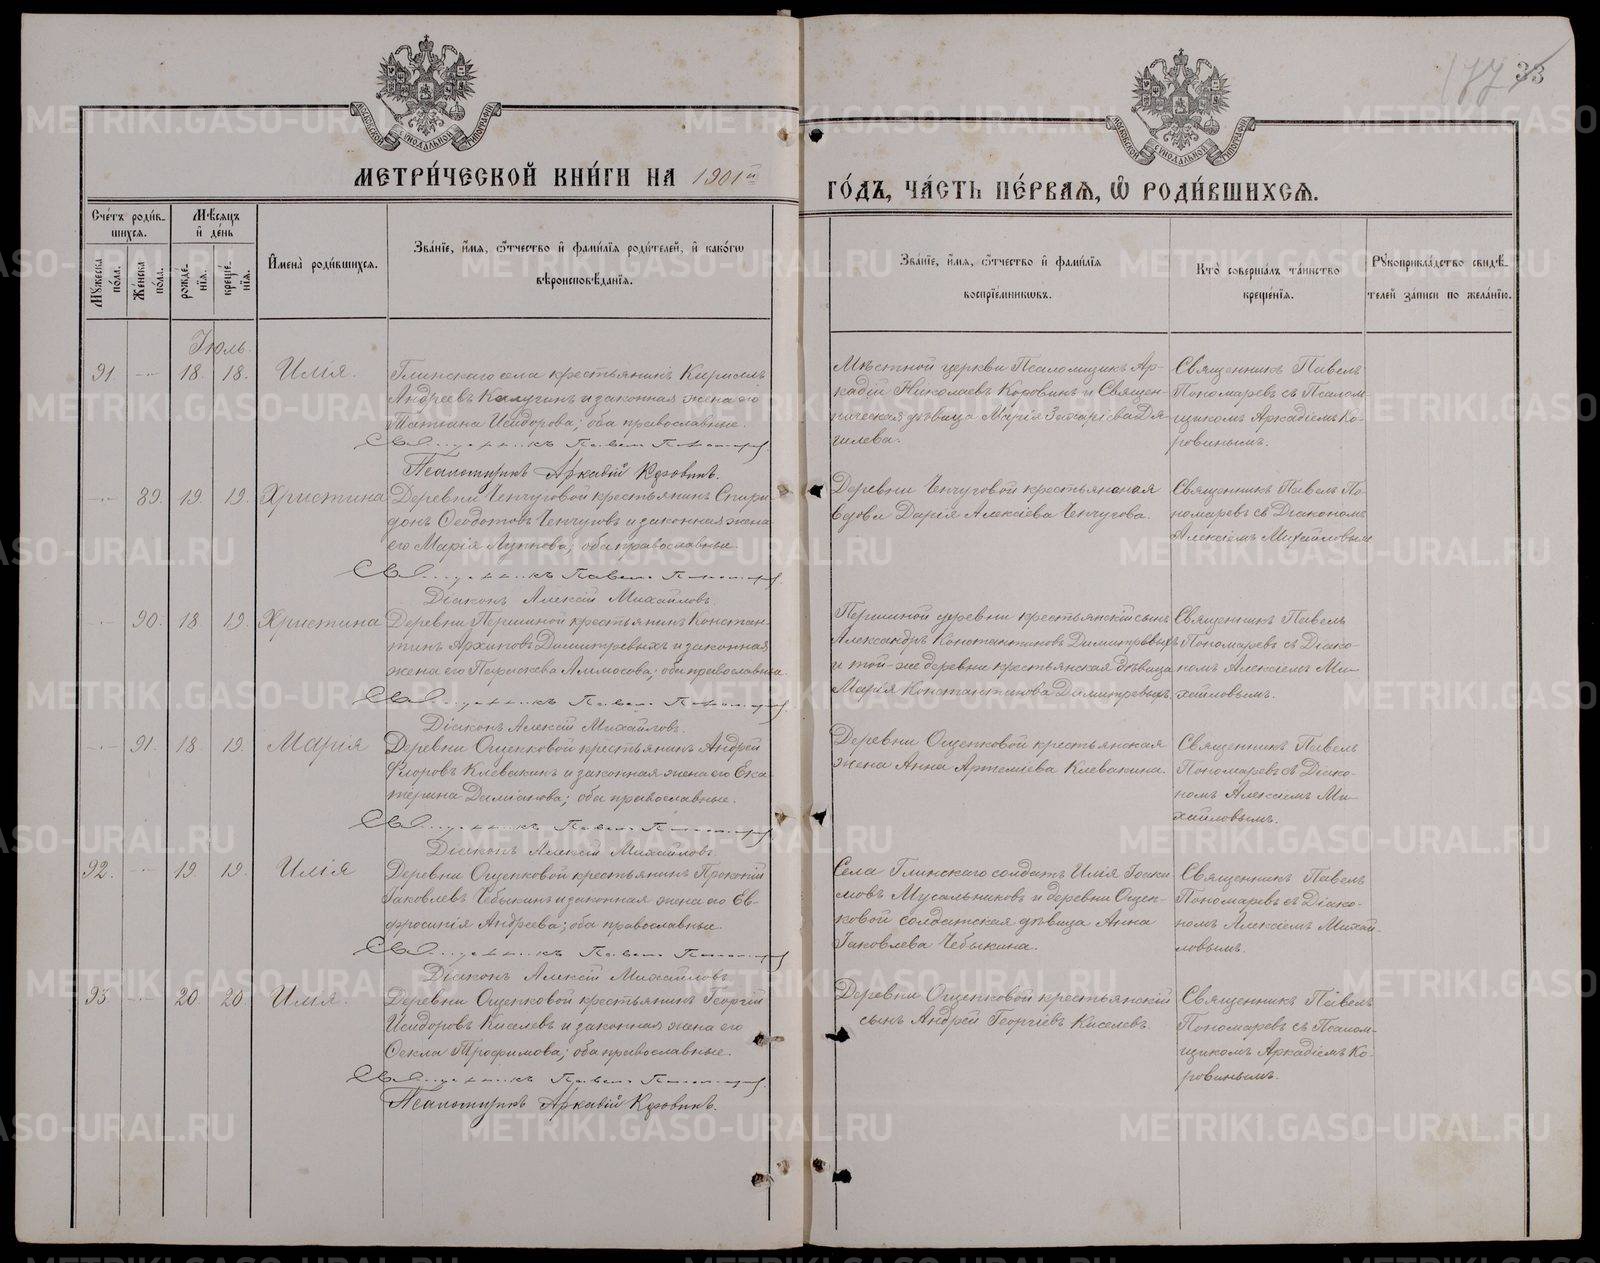 177 33
МЕТРИ́ЧЕСКОЙ КНИ́ГИ НА 1901й ГО́ДЪ, ЧА́СТЬ ПЕ́РВАЯ, Ѿ РОДИ́ВШИХСЯ.
Сче́тъ роди́в-
шихся.
Мѣ́сяцъ
и҆ де́нь
Мꙋ́жеска по́ла.
Же́нска по́ла.
рожде́-
нїѧ.
креще́-
нїѧ.
И҆мена̀ роди́вшихсѧ.
Зва́нїе, и҆́мѧ, ѻ҆́тчество и҆ фами́лїѧ роди́телей, и҆ како́гѡ
вѣроисповѣ́данїѧ.
Зва́нїе, и҆́мѧ, ѻ҆́тчество и҆ фами́лїѧ
воспрїе́мникѡвъ.
Кто̀ соверша́лъ та́инство
креще́нїѧ.
Рꙋкоприкла́дство свидѣ́-
телей за́писи по жела́нїю.
Іюль.
91. 18. 18. Илія.
Глинскаго села крестьянинъ Кириллъ
Андреевъ Калугинъ и законная жена его
Татіана Исидорова; оба православные.
Священникъ Павелъ Пономаревъ
Псаломщикъ Аркадій Коровинъ.
Мѣстной церкви Псаломщикъ Ар-
кадій Николаевъ Коровинъ и Священ-
ническая дѣвица Марія Захаріева Дя-
гилева.
Священникъ Павелъ
Пономаревъ съ Псалом-
щикомъ Аркадіемъ Ко-
ровинымъ.
89. 19. 19. Христина
Деревни Ченчуговой крестьянинъ Спири-
донъ Ѳеодотовъ Ченчуговъ и законная жена
его Марія Луппова; оба православные.
Священникъ Павелъ Пономаревъ
Діаконъ Алексій Михайловъ.
Деревни Ченчуговой крестьянская
вдова Дарія Алексіева Ченчугова.
Священникъ Павелъ По-
номаревъ съ Діакономъ
Алексіемъ Михайловымъ
90. 18. 19. Христина
Деревни Першиной крестьянинъ Констан-
тинъ Архиповъ Димитревыхъ и законная
жена его Параскева; оба православные.
Священникъ Павелъ Пономаревъ
Діаконъ Алексій Михайловъ.
Першиной деревни крестьянскій сынъ
Александръ Константиновъ Димитревыхъ
и той-же деревни крестьянская дѣвица
Марія Константинова Димитревыхъ.
Священникъ Павелъ
Пономаревъ съ Діако-
номъ Алексіемъ Ми-
хайловымъ.
91. 18. 19. Марія
Деревни Ощепковой крестьянинъ Андрей
Флоровъ Клевакинъ и законная жена его Ека-
терина Даміанова; оба православные.
Священникъ Павелъ Пономаревъ
Діаконъ Алексій Михайловъ.
Деревни Ощепковой крестьянская
жена Анна Артеміева Клевакина.
Священникъ Павелъ
Пономаревъ съ Діако-
номъ Алексіемъ Ми-
хайловымъ.
92. 19. 19. Илія
Деревни Ощепковой крестьянинъ Прокопій
Іаковлевъ Чебыкинъ и законная жена его Ев-
фросинія Андреева; оба православные.
Священникъ Павелъ Пономаревъ
Діаконъ Алексій Михайловъ.
Села Глинскаго солдатъ Илія Іоаки-
мовъ Мусальниковъ и деревни Ощеп-
ковой солдатская дѣвица Анна
Іаковлева Чебыкина.
Священникъ Павелъ
Пономаревъ съ Діако-
номъ Алексіемъ Михай-
ловымъ.
93. 20. 20. Илія.
Деревни Ощепковой крестьянинъ Георгій
Исидоровъ Киселевъ и законная жена его
Ѳекла Трофимова; оба православные.
Священникъ Павелъ Пономаревъ
Псаломщикъ Аркадій Коровинъ.
Деревни Ощепковой крестьянскій
сынъ Андрей Георгіевъ Киселевъ.
Священникъ Павелъ
Пономаревъ съ Псалом-
щикомъ Аркадіемъ Ко-
ровинымъ.
METRIKI.GASO-URAL.RU